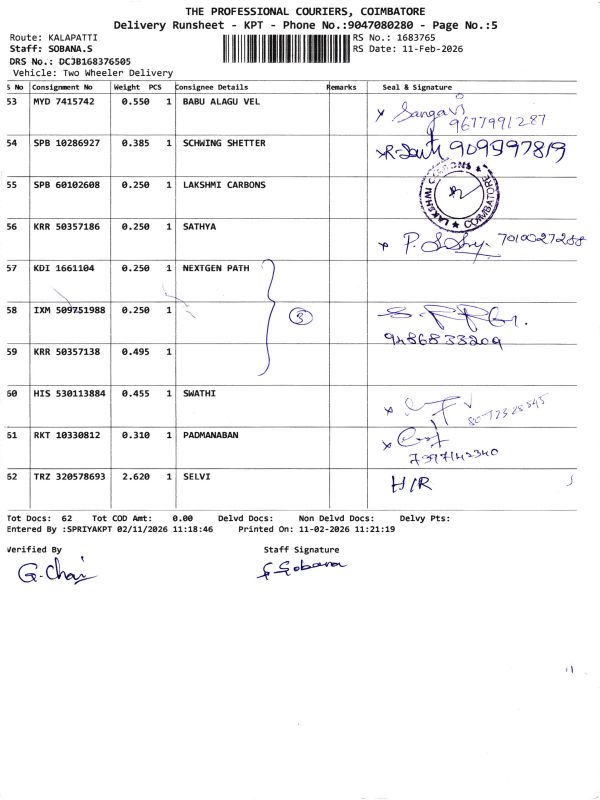 THE PROFESSIONAL COURIERS, COIMBATORE
Delivery Runsheet - KPT - Phone No.:9047080280 - Page No.:5
Route: KALAPATTI
RS No.: 1683765
Staff: SOBANA.S
RS Date: 11-Feb-2026
DRS No.: DCJB168376505
Vehicle: Two Wheeler Delivery
S No Consignment No Weight PCS Consignee Details Remarks Seal & Signature
53 MYD 7415742 0.550 1 BABU ALAGU VEL
Sangavi
9677991287
54 SPB 10286927 0.385 1 SCHWING SHETTER
55 SPB 60102608 0.250 1 LAKSHMI CARBONS
LAKSHMI CARBONS ★ COIMBATORE
56 KRR 50357186 0.250 1 SATHYA
7010027288
57 KDI 1661104 0.250 1 NEXTGEN PATH
58 IXM 509751988 0.250 1
3
9486833209
59 KRR 50357138 0.495 1
60 HIS 530113884 0.455 1 SWATHI
61 RKT 10330812 0.310 1 PADMANABAN
7397142340
62 TRZ 320578693 2.620 1 SELVI H/R
Tot Docs: 62 Tot COD Amt: 0.00 Delvd Docs: Non Delvd Docs: Delvy Pts:
Entered By :SPRIYAKPT 02/11/2026 11:18:46 Printed On: 11-02-2026 11:21:19
Verified By Staff Signature
G.Chai S.Sobana